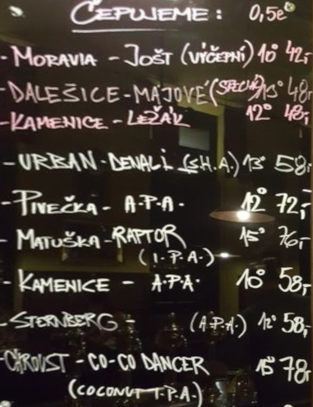 ČEPUJEME: 0,5e
- MORAVIA - JOŠT (VÝČEPNÍ) 10° 42,-
- DALEŠICE - MAJOVÉ (SPECIÁL) 13° 48,-
- KAMENICE - LEŽÁK 12° 48,-
- URBAN - DENALI (S.H.A.) 13° 58,-
- PIVEČKA - A.P.A. 12° 72,-
- MATUŠKA - RAPTOR 15° 76,-
(I.P.A.)
- KAMENICE - A.P.A. 10° 58,-
- STERNBERG - (A.P.A.) 12° 58,-
- CHROUST - CO-CO DANCER 15° 78,-
(COCONUT I.P.A.)